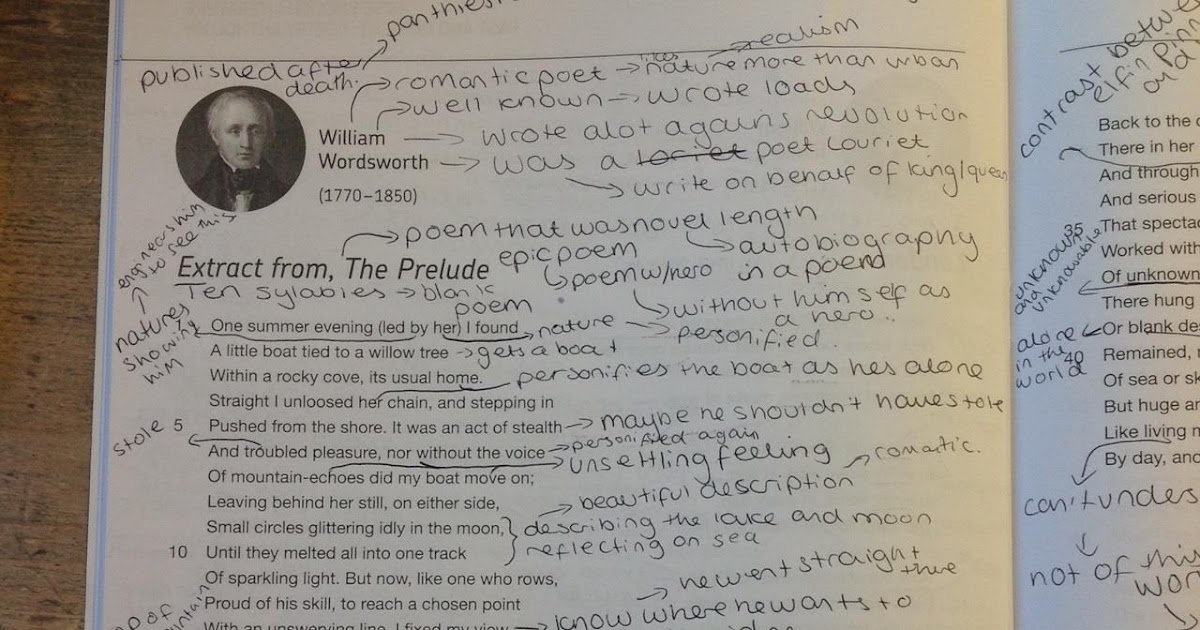 published after
death.
romantic poet → likes nature more than urban
realism
well known → wrote loads
William → wrote alot agains revolution
Wordsworth → was a poet louriet
(1770–1850)
write on behalf of king/queen
engineers him
to see this
poem that was novel length
epic poem
autobiography
in a poem
Extract from, The Prelude
poem w/ hero
Ten sylables → blank
poem
without himself as
a hero..
natures
showing
him
One summer evening (led by her) I found
nature → personified.
A little boat tied to a willow tree → gets a boat
Within a rocky cove, its usual home.
personifies the boat as hes alone
Straight I unloosed her chain, and stepping in
stole
5 Pushed from the shore. It was an act of stealth → maybe he shouldn't have stole
And troubled pleasure, nor without the voice → personified again
unsettling feeling → romantic.
Of mountain-echoes did my boat move on;
Leaving behind her still, on either side,
beautiful description
Small circles glittering idly in the moon,
describing the lake and moon
reflecting on sea
10 Until they melted all into one track
Of sparkling light. But now, like one who rows,
Proud of his skill, to reach a chosen point
he went straight
know where he wants to
With an unswerving line, I fixed my view
contrast
elfin
and
Back to the
There in her
And through
And serious
35 That
Worked with
unknown
and
unknowable
Of unknown
There hung
Or blank
alone
in the
world
Remained,
40 Of sea or
But huge
Like living
By day,
can't
not of this